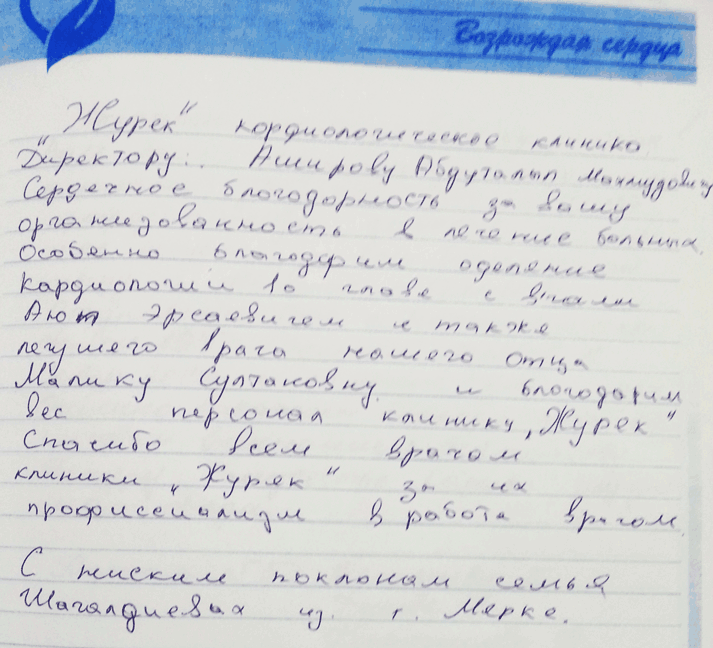 Возрождая сердца
„Журек“ кордиологическое клинико
Директору:. Аширову Абдуталип Махмудовичу
Сердечное благодорность за вашу
организованность в лечение больных.
Особенно благодарим оделение
Кардиологии 1о главе с
Ают Эрсаевичем и также
лечушего врача нашего отца
Малику Султановну и благодарим
вес персонал клинику „Журек“
Спасибо всем врачом
клиники „Журяк“ за их
профиссиализм в работа врачом.
С ниским поклонам семья
Шагалдиевых из. г. Мерке.